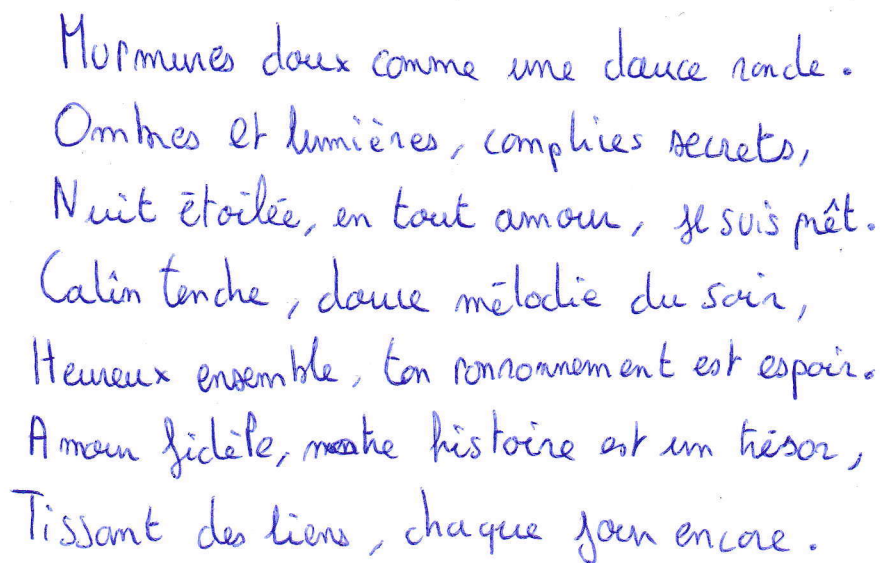 Murmures doux comme une douce ronde.
Ombres et lumières, complices secrets,
Nuit étoilée, en tout amour, je suis prêt.
Calin tendre, douce mélodie du soir,
Heureux ensemble, ton ronronnement est espoir.
Amour fidèle, notre histoire est un trésor,
Tissant des liens, chaque jour encore.